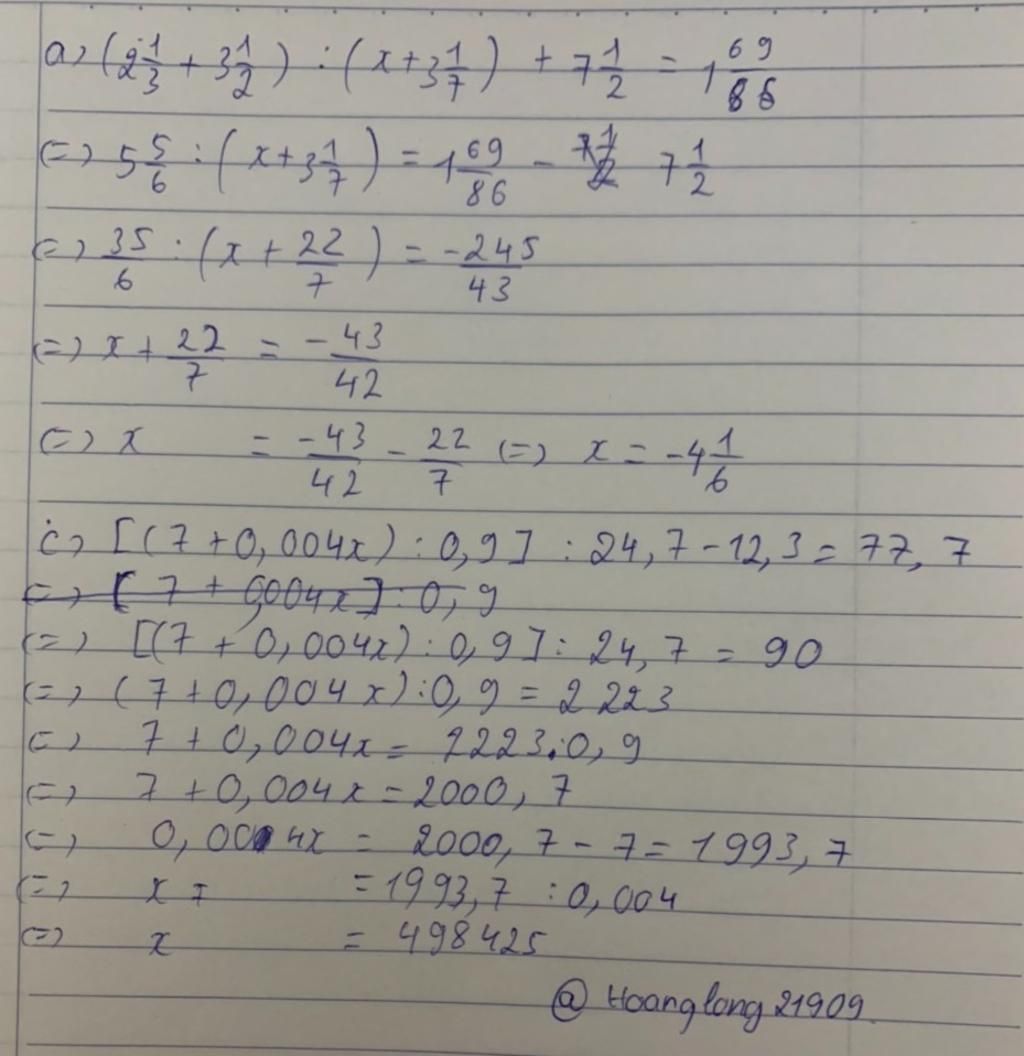 a, (2 1/3 + 3 1/2) : (x + 3 1/7) + 7 1/2 = 1 69/86
(=) 5 5/6 : (x + 3 1/7) = 1 69/86 - 7 1/2
(=) 35/6 : (x + 22/7) = -245/43
(=) x + 22/7 = -43/42
(=) x = -43/42 - 22/7 (=) x = -4 1/6
c, [(7 + 0,004x) : 0,9] : 24,7 - 12,3 = 77,7
(=) [(7 + 0,004x) : 0,9] : 24,7 = 90
(=) (7 + 0,004x) : 0,9 = 2223
(=) 7 + 0,004x = 2223.0,9
(=) 7 + 0,004x = 2000,7
(=) 0,004x = 2000,7 - 7 = 1993,7
(=) x = = 1993,7 : 0,004
(=) x = 498425
@ Hoanglong21909